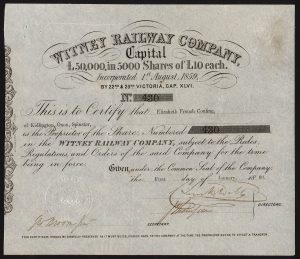 WITNEY RAILWAY COMPANY.
Capital
£50,000, in 5000 Shares of £10 each.
Incorporated 1st August, 1859,
BY 22ND & 23RD VICTORIA, CAP. XLVI.
No. 430
This is to Certify that Elizabeth French
of Kidlington, Oxon, Spinster,
is the Proprietor of the Share, Numbered 430
in the WITNEY RAILWAY COMPANY, subject to the Rules,
Regulations and Orders of the said Company for the time
being in force.
Given under the Common Seal of the Company,
the First day of January 18
DIRECTORS.
SECRETARY.